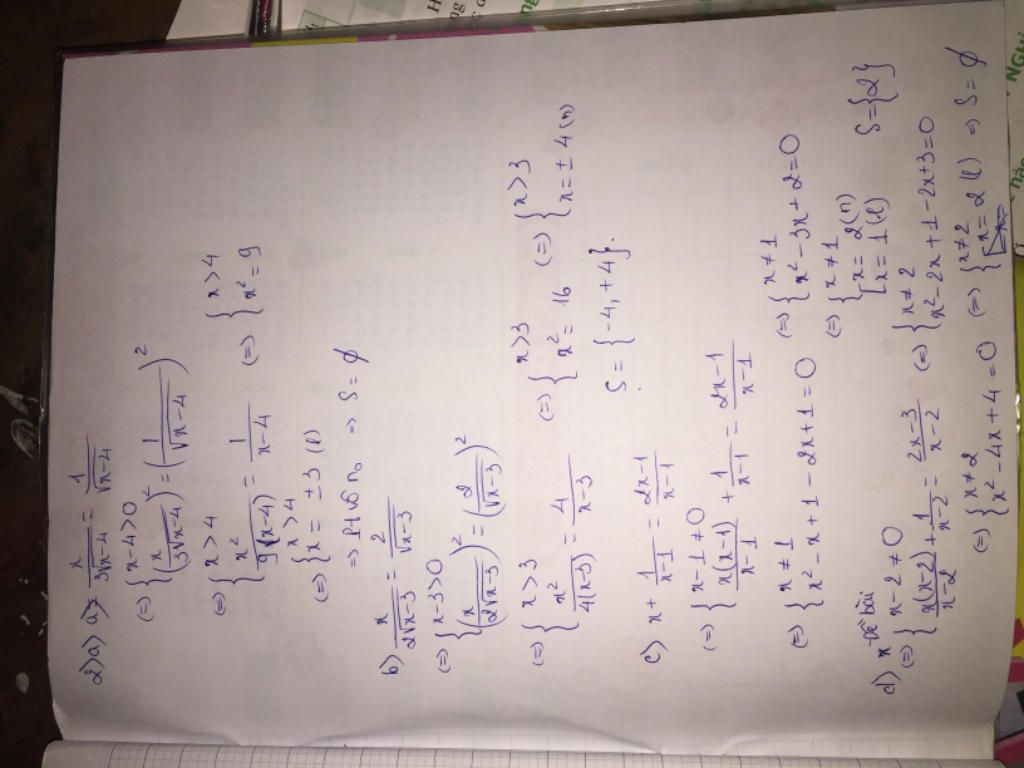 2) a) x/(3√(x-4)) = 1/√(x-4)
(=) { x-4>0
(x/(3√(x-4)))² = (1/√(x-4))²
(=) { x>4
x²/(9(x-4)) = 1/(x-4) (=) { x>4
x² = 9
(=) { x>4
x = ±3 (l)
=> Pt vô n₀ => S = ∅
b) x/(2√(x-3)) = 2/√(x-3)
(=) { x-3>0
(x/(2√(x-3)))² = (2/√(x-3))²
(=) { x>3
x²/(4(x-3)) = 4/(x-3) (=) { x>3
x² = 16 (=) { x>3
x = ±4 (n)
S = {-4, +4}.
c) x + 1/(x-1) = (2x-1)/(x-1)
(=) { x-1≠0
x(x-1)/(x-1) + 1/(x-1) = (2x-1)/(x-1)
(=) { x≠1
x²-x+1-2x+1=0 (=) { x≠1
x²-3x+2=0
(=) { x≠1
[ x=2(n)
x=1(l) S={2}
d) Đề bài
(=) { x-2≠0
x(x-2)/(x-2) + 1/(x-2) = (2x-3)/(x-2) (=) { x≠2
x²-2x+1-2x+3=0
(=) { x≠2
x²-4x+4=0 (=) { x≠2
x=2(l) => S=∅